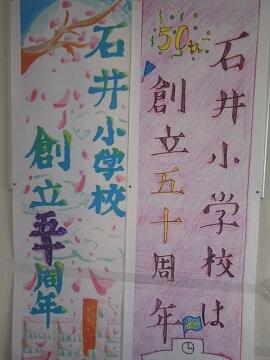 50th
石井小学校は
創立五十周年
石井小学校
創立五十周年